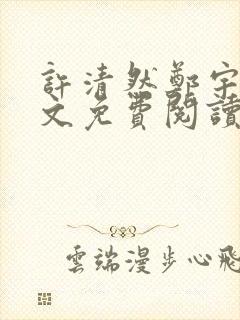 許清然鄭宇
文免費閱讀
雲端漫步心飛